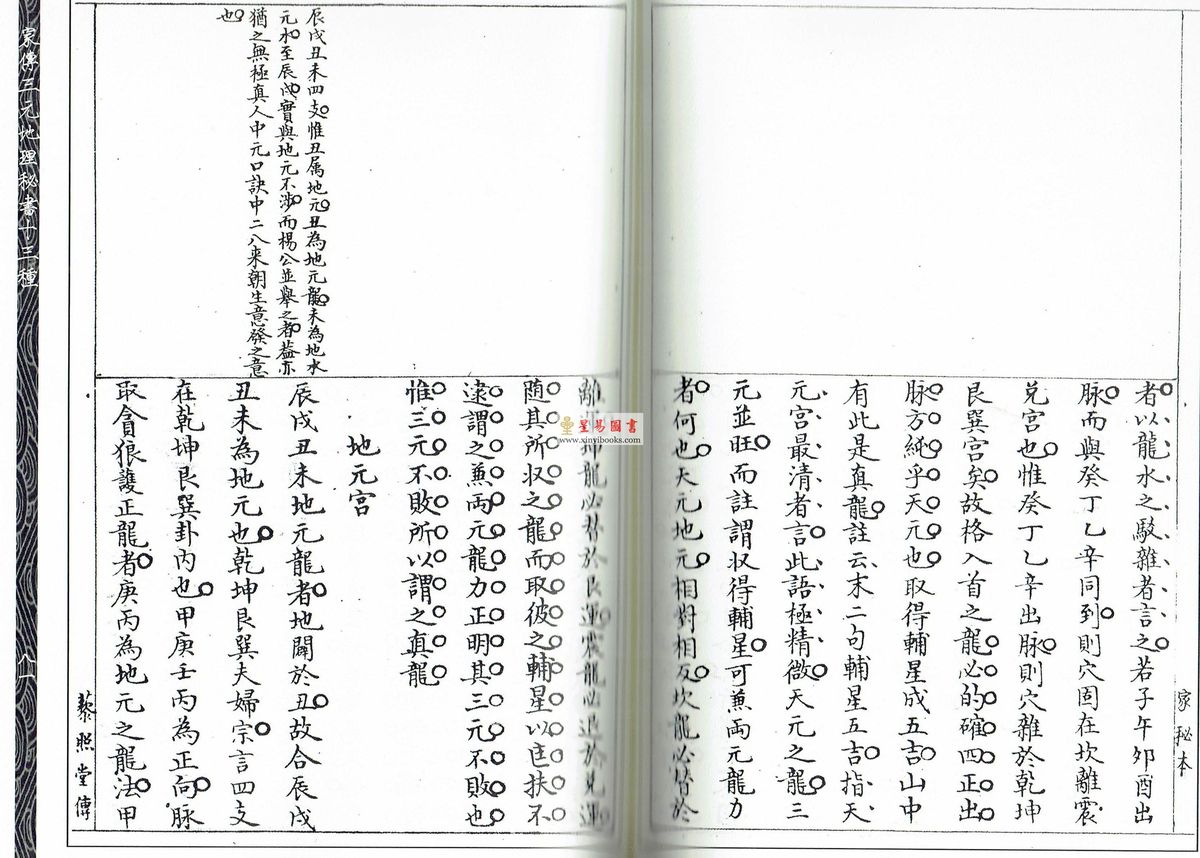 家秘本
者以龍水之駁雜者言之若子午卯酉出
脉而與癸丁乙辛同到則穴固在坎離震
兌宮也惟癸丁乙辛出脉則穴雜於乾坤
艮巽宮矣故格入首之龍必的確四正出
脉方純乎天元也取得輔星成五吉山中
有此是真龍註云末二句輔星五吉指天
元宮最清者言此語極精微天元之龍三
元並旺而註謂収得輔星可兼両元龍力
者何也天元地元相對相反坎龍必替於
龍必替於艮運震龍必退於兌運
随其所収之龍而取彼之輔星以匡扶不
逮謂之兼両元龍力正明其三元不敗也
惟三元不敗所以謂之真龍
地元宮
辰戌丑未地元龍者地闢於丑故合辰戌
丑未為地元也乾坤艮巽夫婦宗言四支
在乾坤艮巽卦内也甲庚壬丙為正向脉
取貪狼護正龍者庚丙為地元之龍法甲
辰戌丑未四支惟丑属地元丑為地元龍未為地水
元水至辰戌實與地元不涉而楊公並舉之者葢亦
猶之無極真人中元口訣中二八来朝生意發之意
也
藜照堂傳
家傳三元地理秘書十三種
星易圖書
www.xinyibooks.com